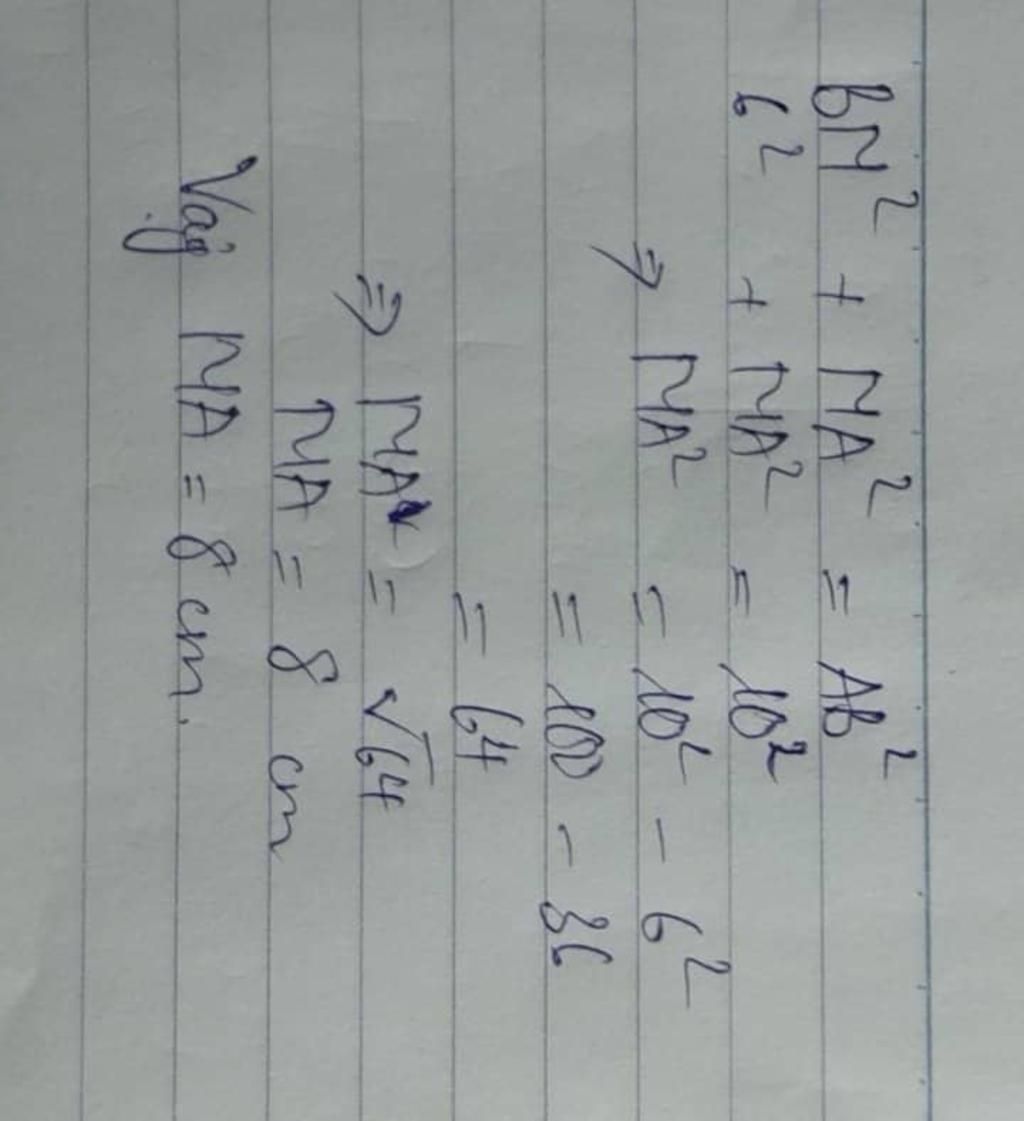 BM² + MA² = AB²
6² + MA² = 10²
⇒ MA² = 10² - 6²
= 100 - 36
= 64
⇒ MA = √64
MA = 8 cm
Vậy MA = 8 cm.